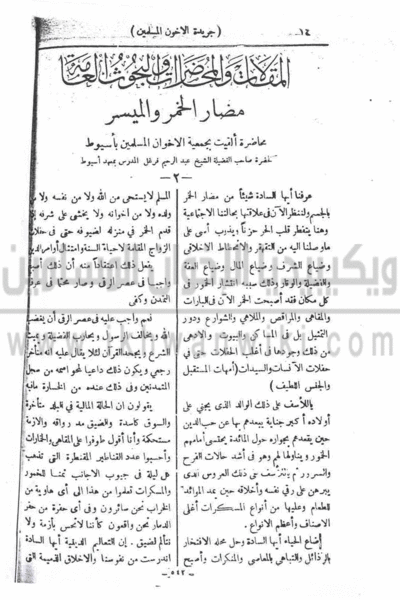 ١٤
( جريدة الاخوان المسلمين )
المقالات والمحاضرات والبحوث العامة
مضار الخمر والميسر
محاضرة ألقيت بجمعية الاخوان المسلمين بأسيوط
لحضرة صاحب الفضيلة الشيخ عبد الرحيم فرغل المدرس بمعهد أسيوط
— ٢ —
عرفنا أيها السادة شيئاً من مضار الخمر
بالجسم ولننظر الآن فى علاقتها بحالتنا الاجتماعية
وهنا يتفطر قلب الحر حزناً ويذرب أسى على
ما وصلنا اليه من التقهقر والانحطاط الاخلاقى
وضياع الشرف وضياع المال وضياع العفة
والفضيلة والوقار وذلك سببه انتشار الخمور فى
كل مكان فقد أصبحت الخمر الآن فى البارات
والمقاهى والمراقص والملاهى والشوارع ودور
التمثيل بل فى المساكن والبيوت والأدهى
من ذلك وجودها فى أغلب الحفلات حتى فى
حفلات الآنسات والسيدات ( أمهات المستقبل
والجنس اللطيف )
ياللأسف على ذلك الوالد الذى يجنى على
أولاده أكبر جناية يبعدهم بها عن حب الدين
حين يقعدهم بجواره حول المائدة يحتسى أمامهم
الخمور ويناولها لهم وهو فى أشد حالات الفرح
والسرور ثم يتأسف على ذلك العروس الذى
يبرهن على رقى نفسه وأخلاقه حين يمد الموائد
للطعام وعليها من أنواع المسكرات أغلى
الاصناف وأعظم الانواع .
أضاع الحياء أيها السادة وحل محله الافتخار
بالرذائل والتباهى بالمعاصى والمنكرات وأصبح
المسلم لا يستحى من الله ولا من نفسه ولا من
ولده ولا من اخوانه ولا يخشى على شرفه إن
قدم الخمر فى منزله لضيوفه حتى فى حفلات
الزواج المقامة لاحياء السنة وامتثال أوامر الدين
يفعل ذلك اعتقاداً منه أن ذلك أصبح
واجباً فى عصر الرقى وصار محتما فى عرف
التمدن وكفى
فعم واجب عليه فى عصر الرقى أن يغضب
الله ويخالف الرسول ويحارب الفضيلة ويعبث
الشرع ويجحد القرآن لئلا يقال عليه انه متأخر
رجعي ويكون ذلك داعيا لمحو اسمه من سجل
المتمدنين وفى ذلك عنده من الخسارة مافيه
يقولون ان الحالة المالية فى البلاد متأخرة
والسوق كاسدة والضيق مد رواقه والازمة
مستحكمة وأنا أقول طوفوا على المقاهى والخمارات
وأحسبوا عدد القناطير المقنطرة التى تذهب
كل ليلة فى جيوب الاجانب ثمنا للخمور
والمسكرات تعلموا من هذا الى أى هاوية من
الخراب نحن سائرون وفى أى حفرة من
الدمار نحن واقعون كأننا لانحس بأزمة ولا
نتألم لضيق . إن التعاليم الدينية أيها السادة
اندرست من نفوسنا والاخلاق القديمة التى
— ٥٤٢ —